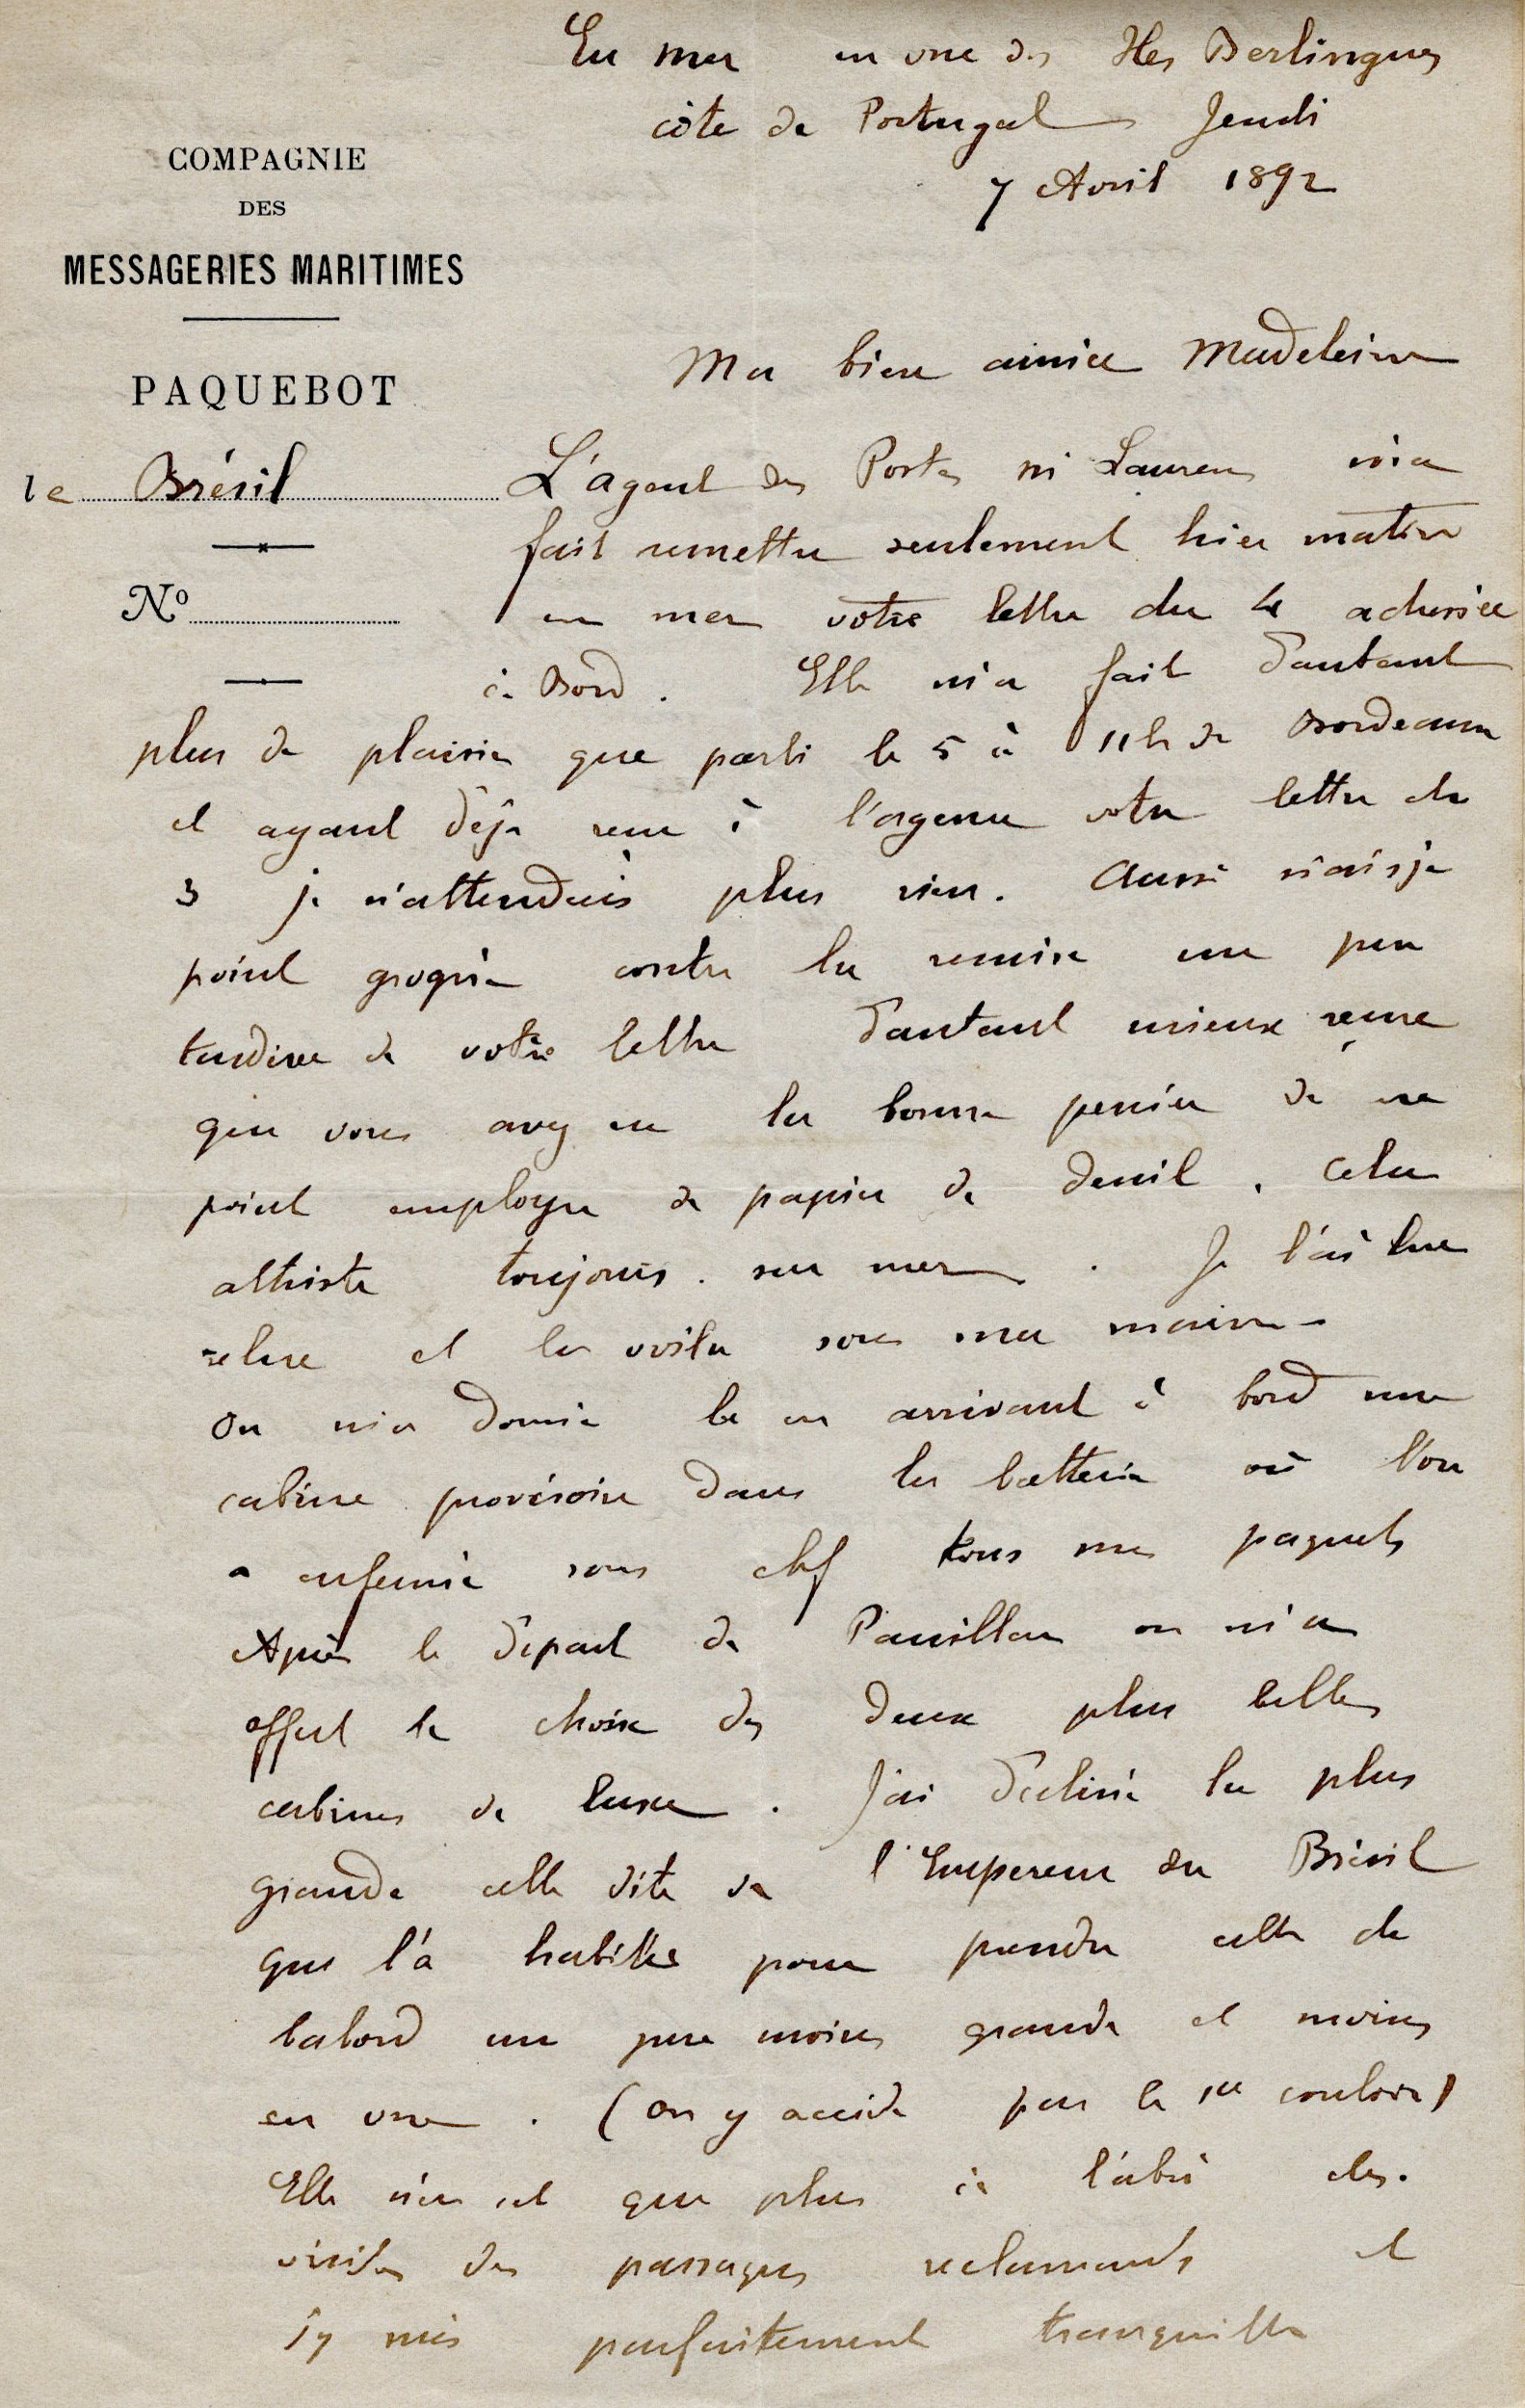 En mer en vue des Iles Berlingues
côte de Portugal Jeudi
7 Avril 1892
COMPAGNIE
DES
MESSAGERIES MARITIMES
PAQUEBOT
le Brésil
No
Ma bien aimée Madeleine
L'agent des Postes m'a
fait remettre seulement hier matin
en mer votre lettre du 4 adressée
à Bord. Elle m'a fait d'autant
plus de plaisir que parti le 5 à 11h de Bordeaux
et ayant déjà reçu à l'agence votre lettre du
3 je n'attendais plus rien. Aussi n'ai-je
point grogné contre la remise un peu
tardive de votre lettre d'autant mieux reçue
que vous avez eu la bonne pensée de ne
point employer de papier de deuil. Cela
attriste toujours sur mer. Je l'ai lue
relue et la voila sous ma main -
On m'a donné le en arrivant à bord une
cabine provisoire dans la batterie où l'on
a enfermé sous clef tous mes paquets
Après le départ de Pauillac on m'a
offert le choix des deux plus belles
cabines de luxe. J'ai décliné la plus
grande celle dite de l'Empereur du Brésil
qui l'a habitée pour prendre celle de
babord un peu moins grande et moins
en vue. (on y accède par le 1er couloir)
Elle n'en est que plus à l'abri des
visites des passagers réclamants et
j'y suis parfaitement tranquille